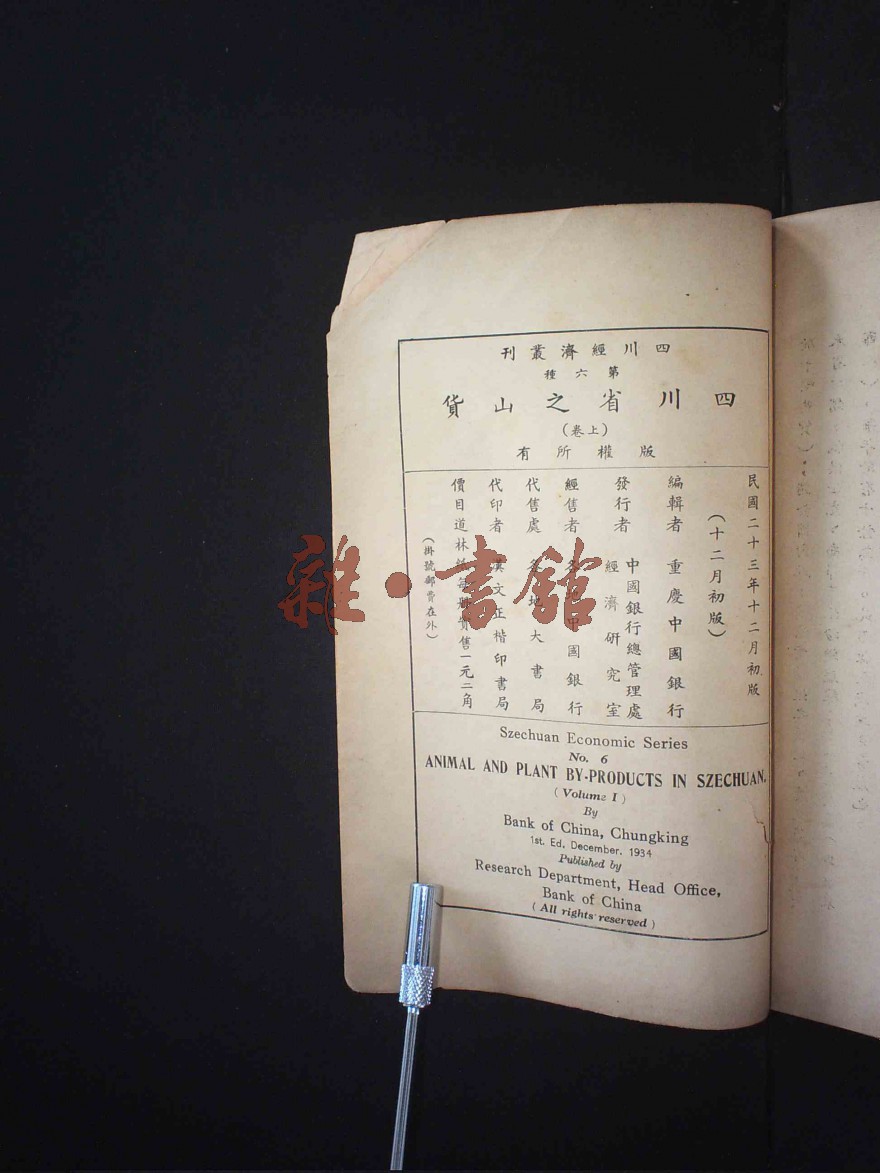 四川經濟叢刊
第六種
四川省之山貨
（上卷）
版權所有
民國二十三年十二月初版
（十二月初版）
編輯者 重慶中國銀行
發行者 中國銀行總管理處
經濟研究室
經售者 各 中國銀行
代售處 各地大書局
代印者 漢文正楷印書局
價目道林 每册實售一元二角
（掛號郵費在外）
Szechuan Economic Series
No. 6
ANIMAL AND PLANT BY-PRODUCTS IN SZECHUAN.
( Volume I )
By
Bank of China, Chungking
1st. Ed, December, 1934
Published by
Research Department, Head Office,
Bank of China
( All rights reserved )
雜·書館